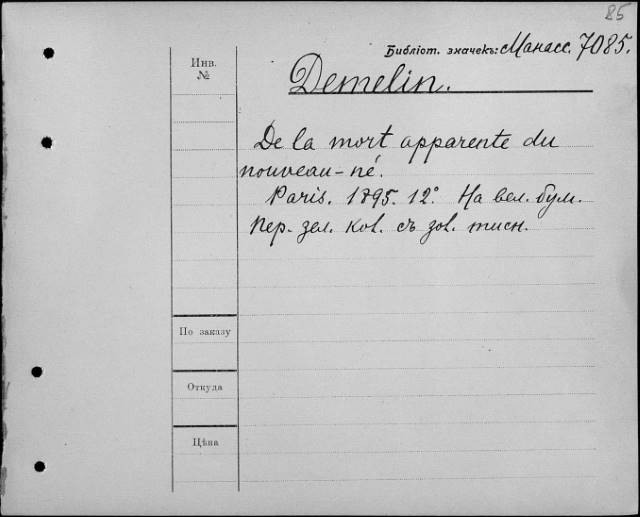 85
Библіот. значекъ: Манасс. 7085.
Инв.
№
Demelin.
De la mort apparente du
nouveau-né.
Paris. 1895. 12°. На вел. бум.
Пер. зел. ков. съ зол. тисн.
По заказу
Откуда
Цѣна